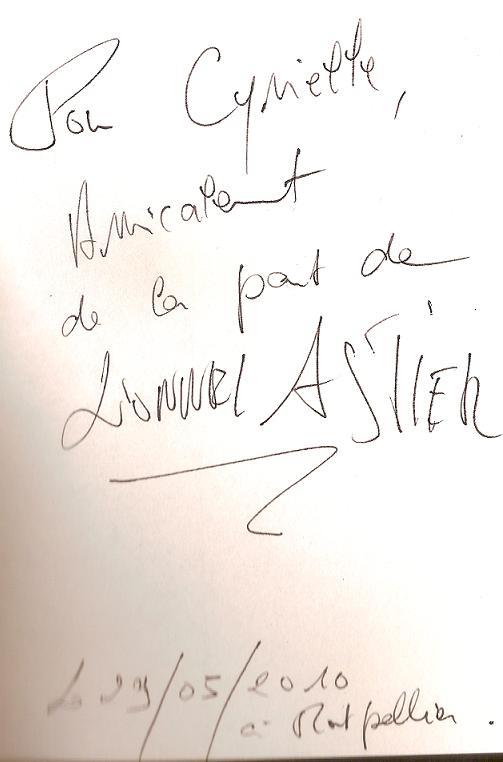 Pour Cyrielle,
Amicalement
de la part de
Lionnel ASTIER
Le 29/05/2010
à Montpellier.